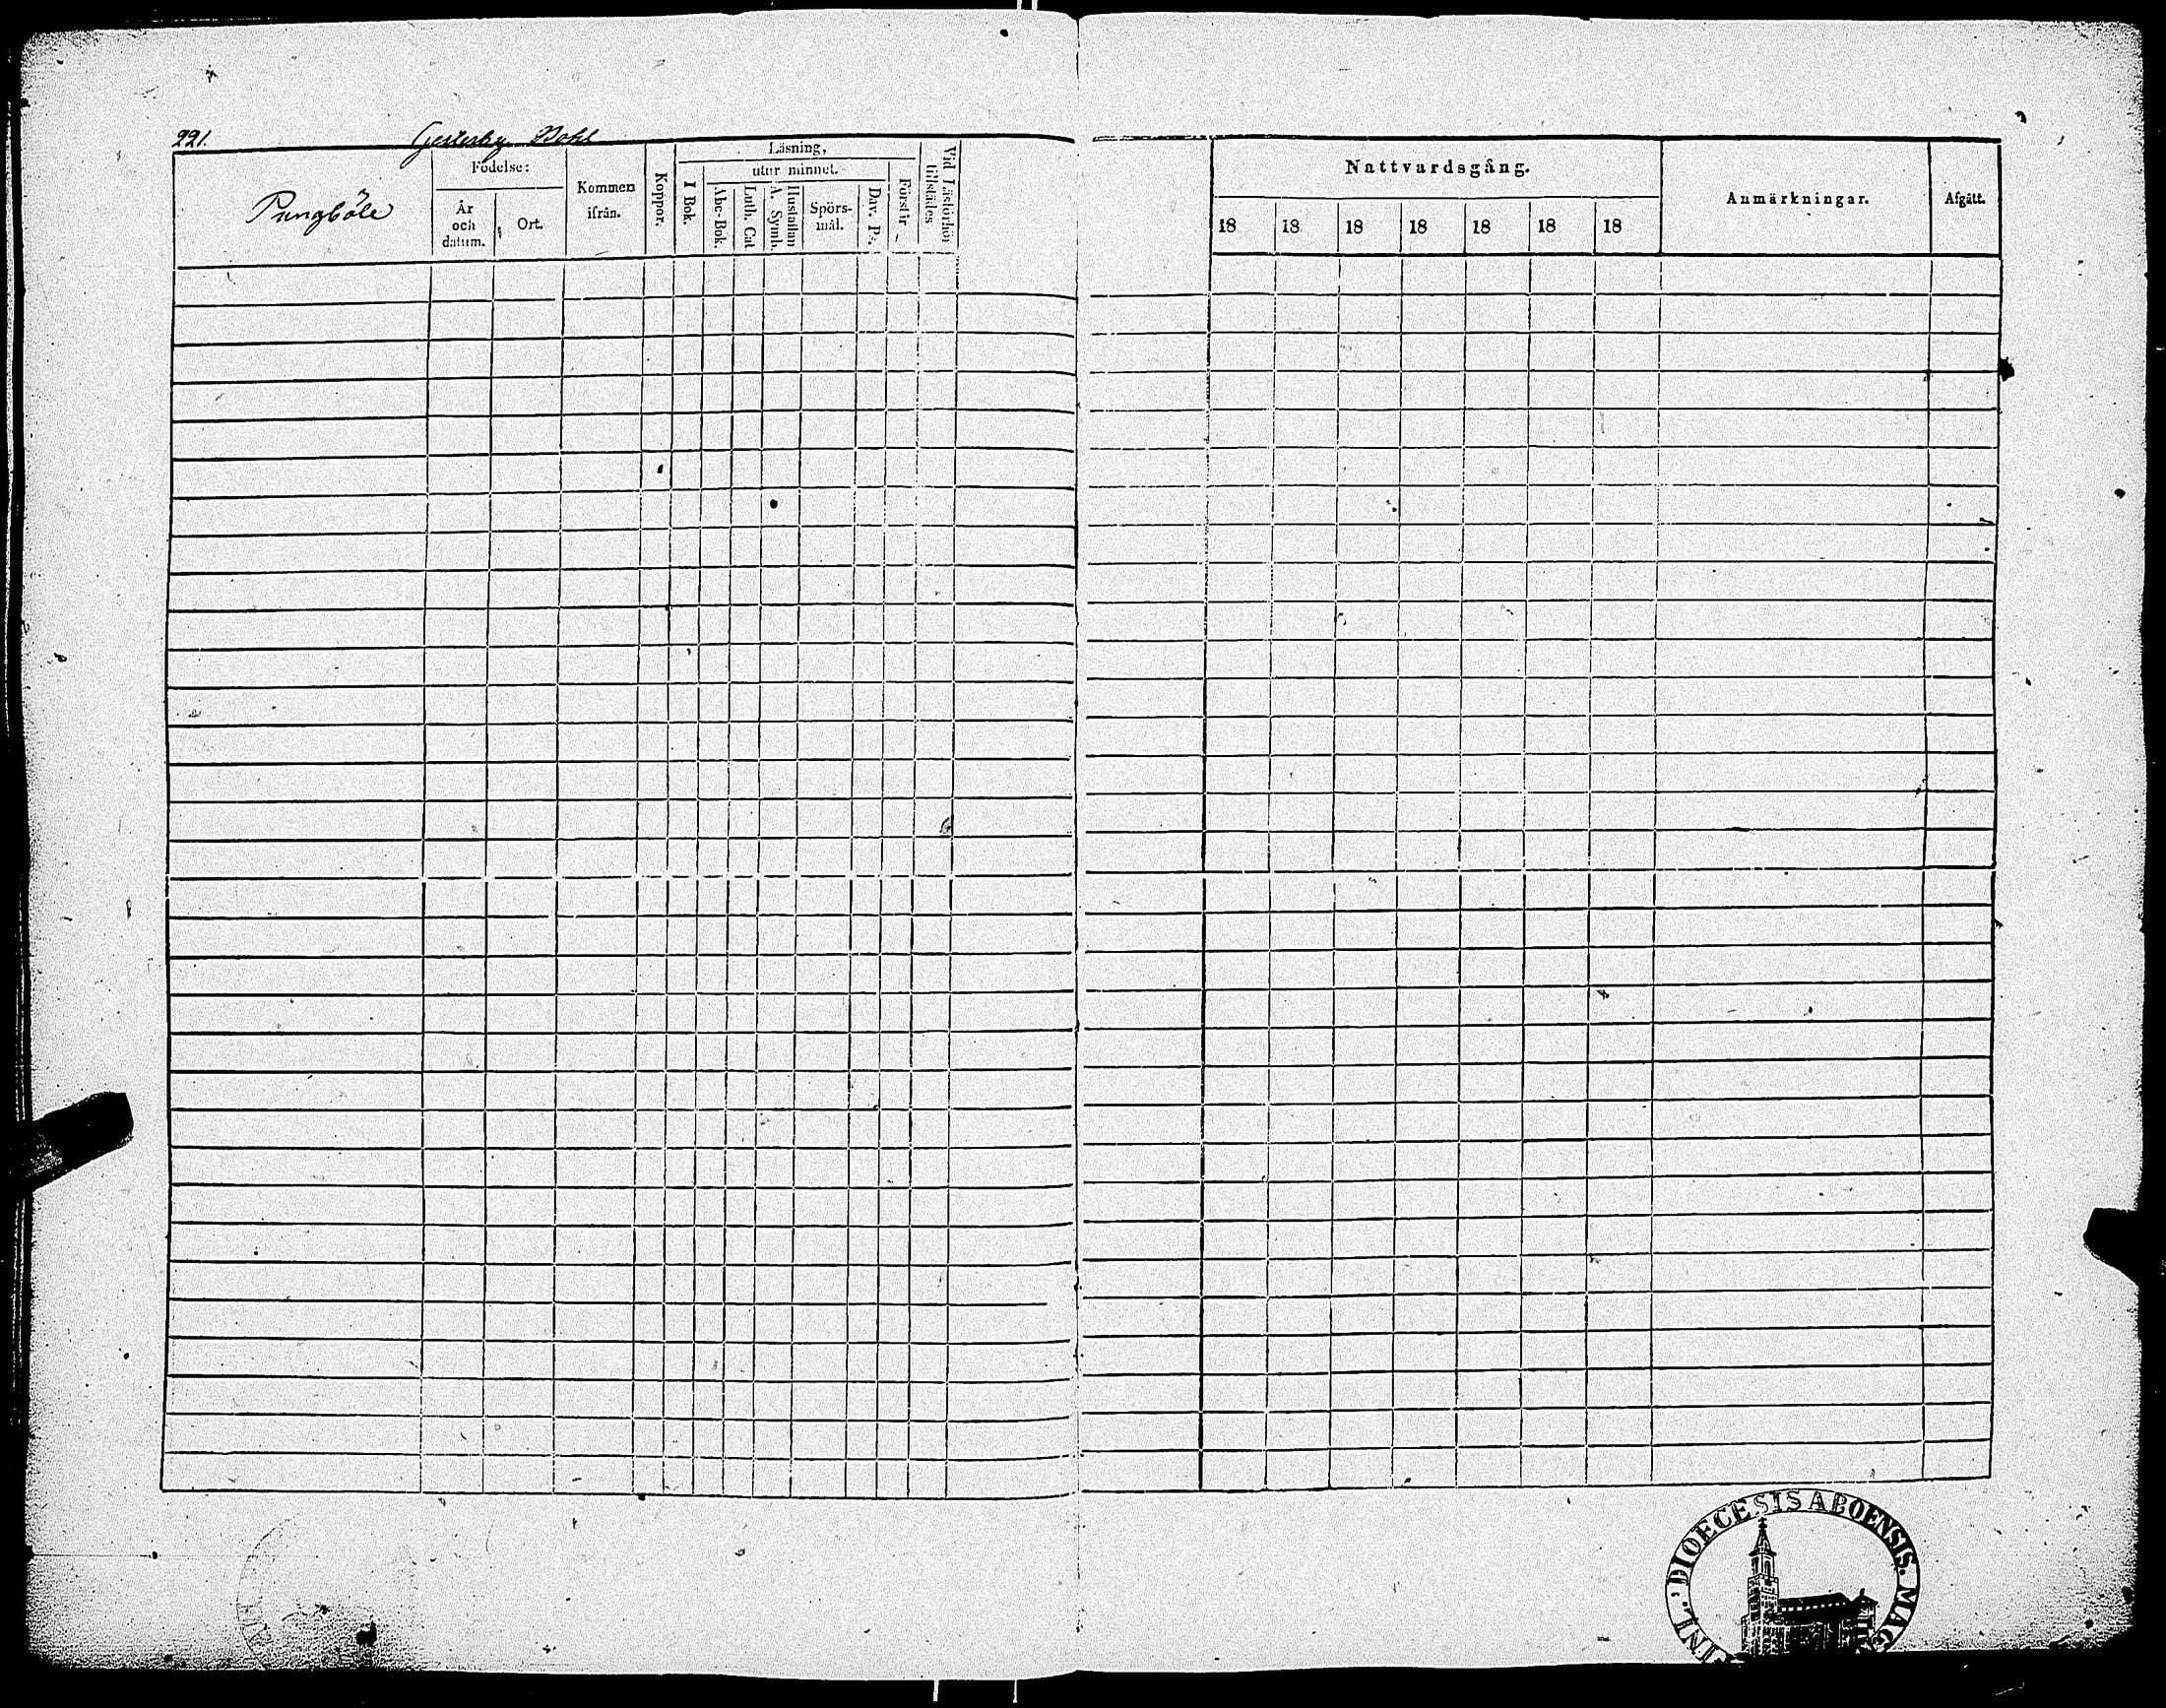 221. Gesterby Bohl
Pungböle
Födelse:
År och datum.
Ort.
Kommen ifrån.
Koppor.
Läsning,
I Bok.
utur minnet.
Abc-Bok.
Luth. Cat
Hustaflan A. Symb.
Spörs-mål.
Dav. Ps.
Förstår
Vid Läsförhör tillstädes
Nattvardsgång.
18 18 18 18 18 18 18
Anmärkningar.
Afgått.
DIOECESIS ABOENSIS. MAG